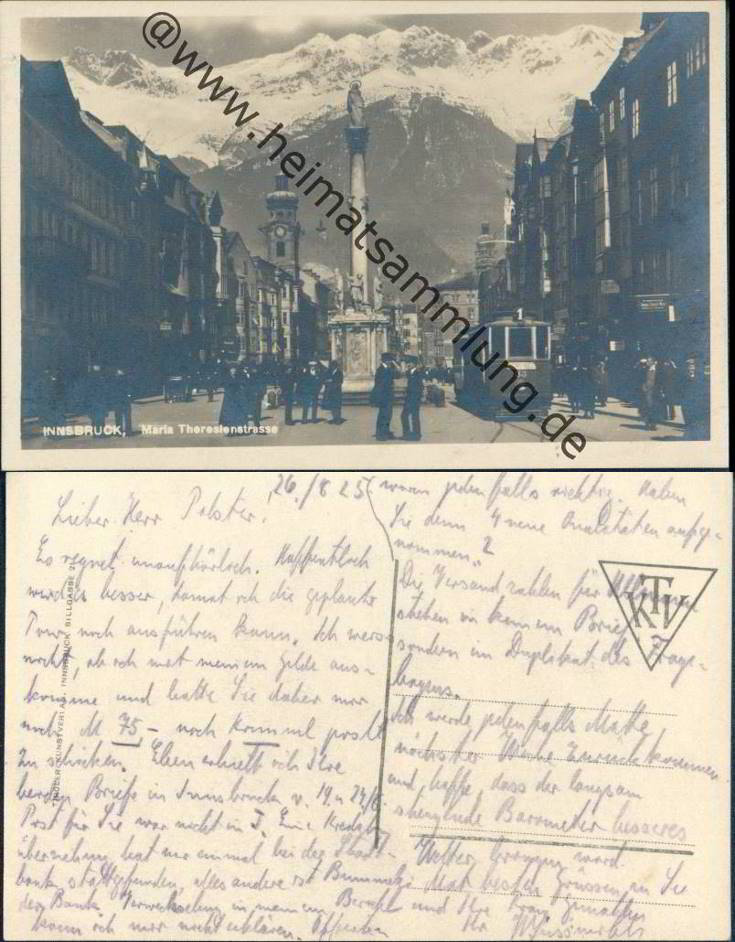 @www.heimatsammlung.de
1
INNSBRUCK, Maria Theresienstrasse
26./8 25.
Lieber Herr Polster!
Es regnet unaufhörlich. Hoffentlich
wird es besser, damit ich die geplante
Tour noch ausführen kann. Ich weiss
nicht, ob ich mit meinem Gelde aus-
komme und bitte Sie daher mir
noch M 75 – nach postl
zu schicken. Eben erhielt ich Ihre
beiden Briefe in Innsbruck v. 19. u
Post für Sie war nicht in I. Eine
hat nur einmal bei der Stadt-
bank stattgefunden, alles andere ist
der Bank. Verwechslung in meinem
kann ich mir nicht erklären.
waren jedenfalls richtig. Haben
Sie denn 4 neue Qualitäten aufge-
nommen?
Die Versandzahlen für
stehen in keinem Brief
sondern im Duplikat des Frage-
bogens.
Ich werde jedenfalls Mitte
nächster Woche zurückkommen
und hoffe, dass der langsam
steigende Barometer besseres
Wetter bringen wird.
Mit besten Grüssen an Sie
und Ihre Frau Gemahlin
Ihr
KTV
TIROLER KUNSTVERLAG, INNSBRUCK, SILLGASSE 21